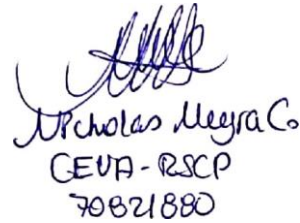 Nicholas Meyra C.
CEVA-RSCP
70821880